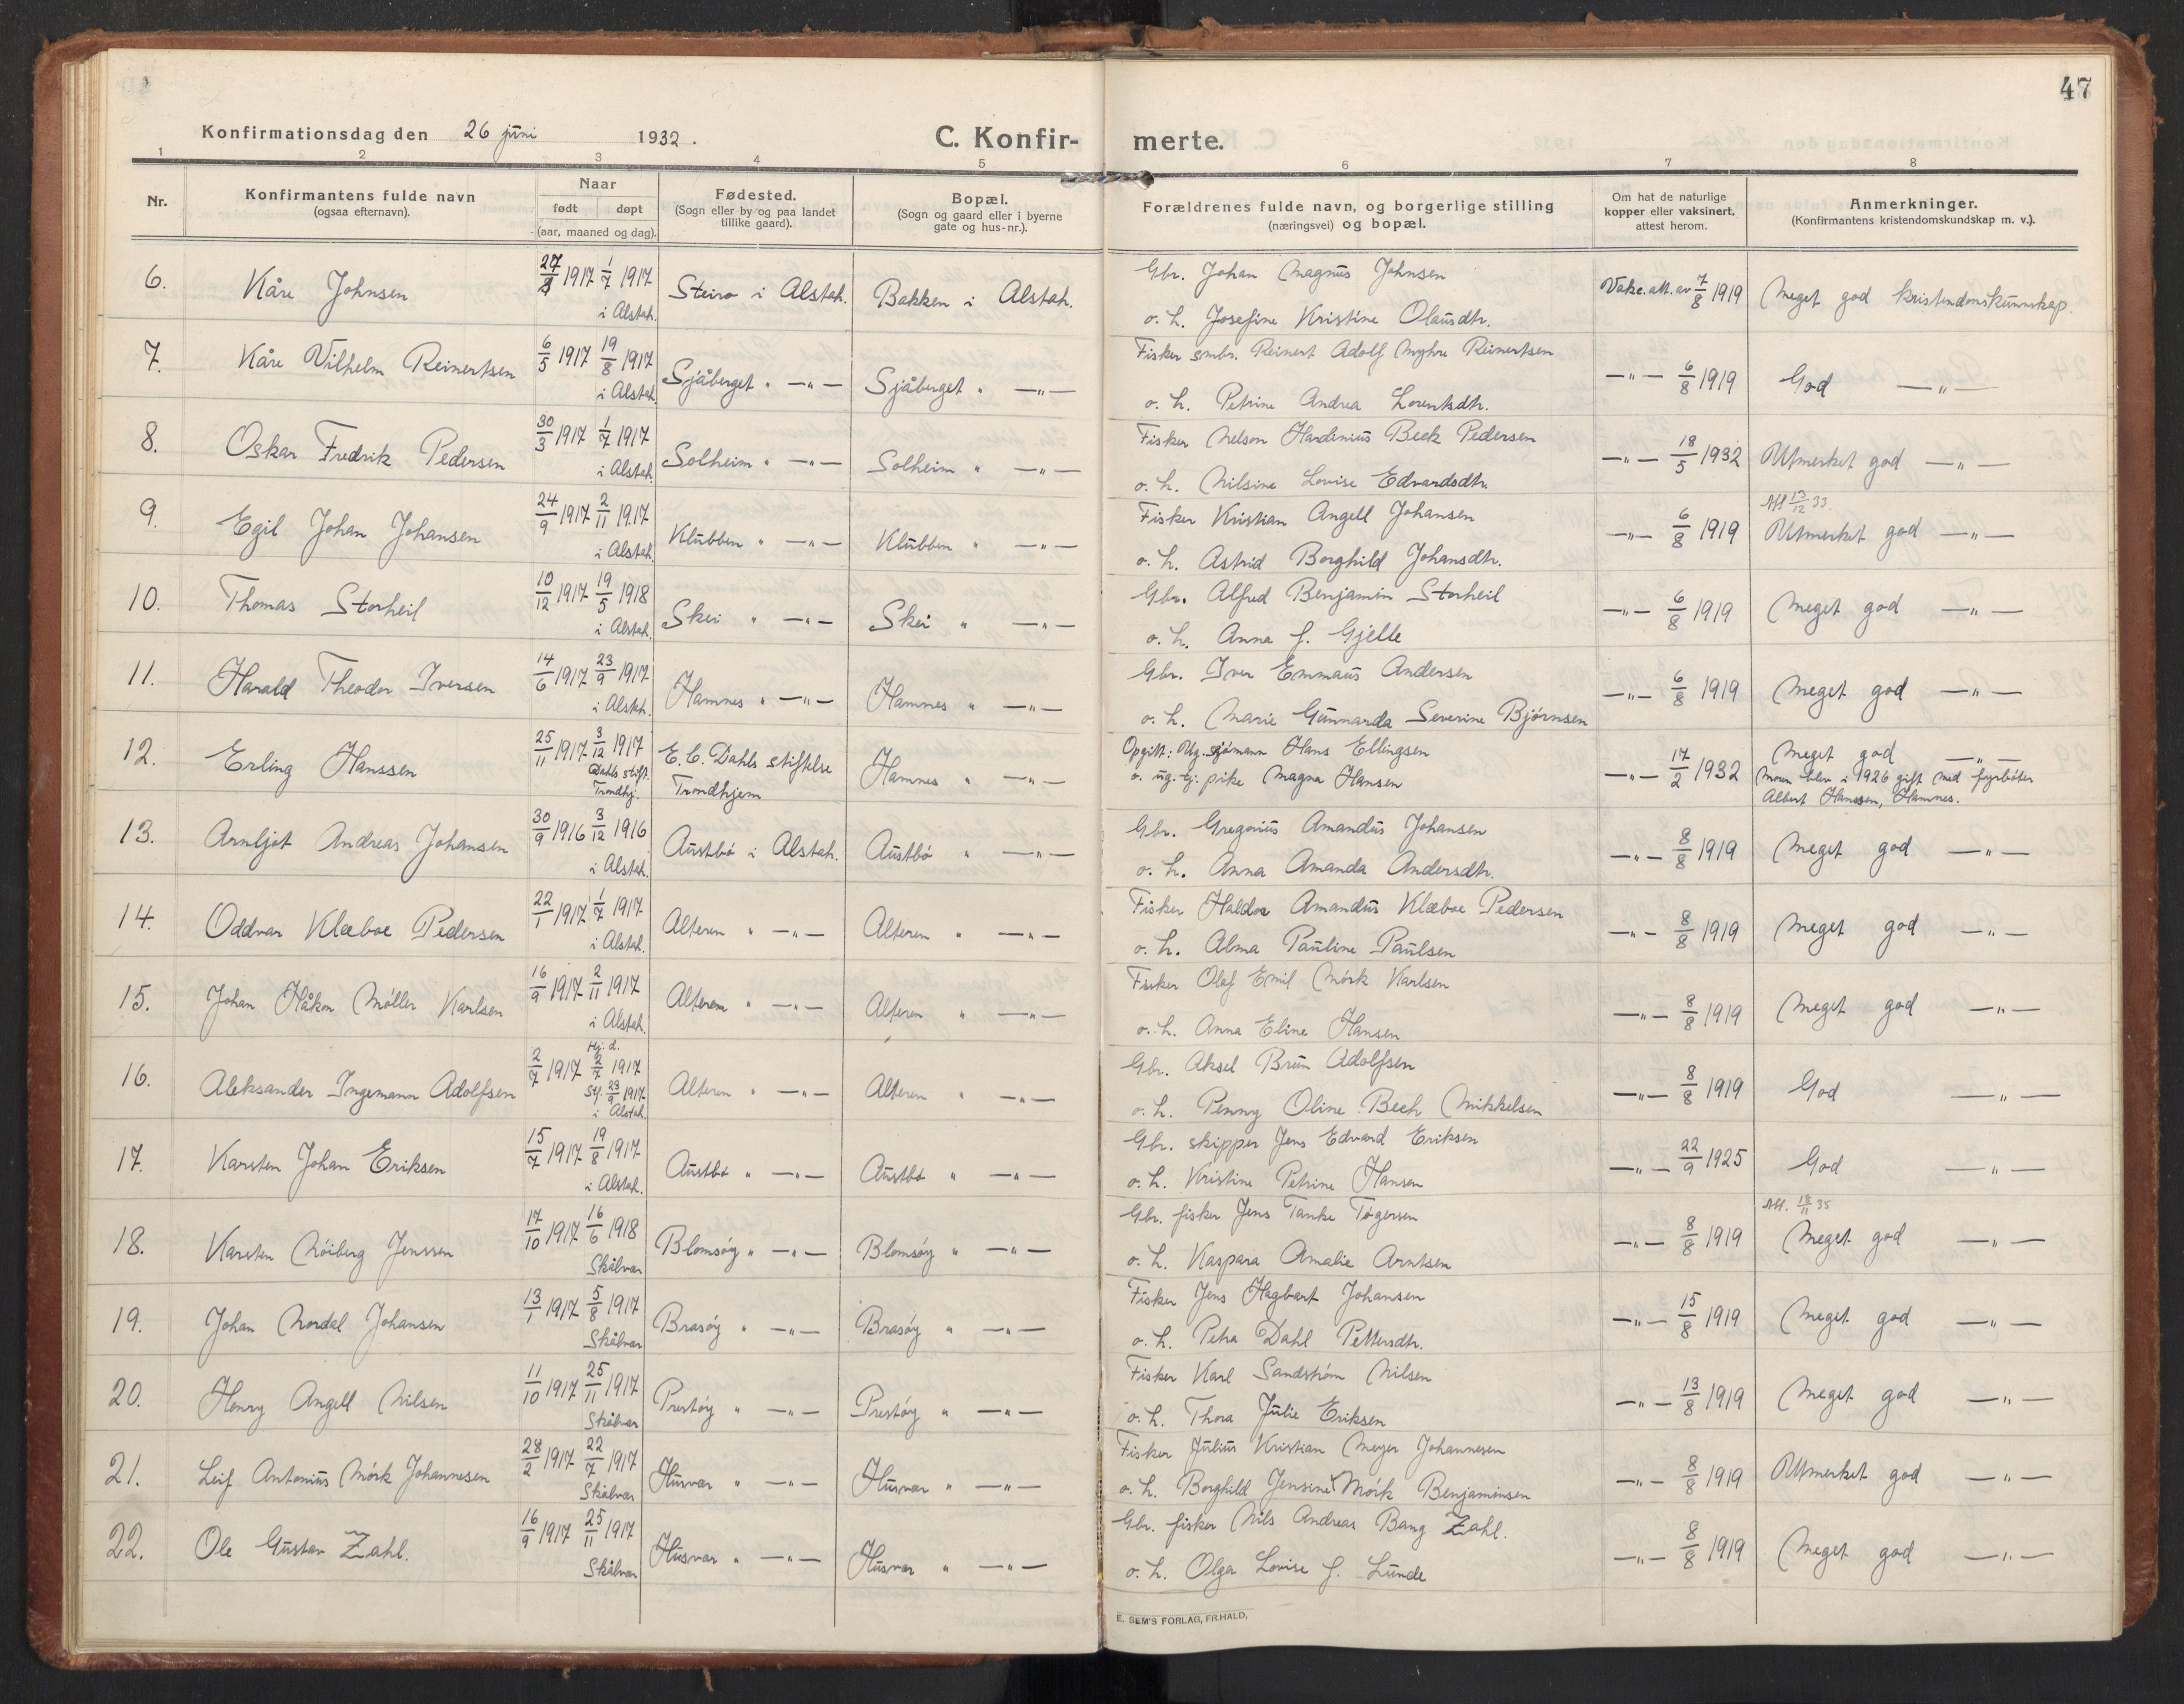 47
Konfirmationsdag den 26 juni 1932. C. Konfir- merte.
1 2 3 4 5 6 7 8
Nr. Konfirmantens fulde navn (ogsaa efternavn). Naar født døpt (aar, maaned og dag). Fødested. (Sogn eller by og paa landet tillike gaard). Bopæl. (Sogn og gaard eller i byerne gate og hus-nr.). Forældrenes fulde navn, og borgerlige stilling (næringsvei) og bopæl. Om hat de naturlige kopper eller vaksinert, attest herom. Anmerkninger. (Konfirmantens kristendomskundskap m. v.).
6. Kåre Johnsen 1917 1/7 1917 i Alstah. Steiro i Alstah. Bakken i Alstah. Gbr. Johan Magnus Johnsen
o. h. Josefine Kristine Olausdtr. Vakc. att. av 7/8 1919 Meget god kristendomskunnskap.
7. Kåre Vilhelm Reinertsen 6/5 1917 19/8 1917 i Alstah. Sjåberget " —"— Sjåberget " —"— Fisker smbr. Reinert Adolf Myhre Reinertsen
o. h. Petrine Andrea Lorentsdtr. —"— 6/8 1919 God —"—
8. Oskar Fredrik Pedersen 30/3 1917 1/7 1917 i Alstah. Solheim " —"— Solheim " —"— Fisker Nelson Hardinius Beck Pedersen
o. h. Nilsine Lovise Edvardsdtr. —"— 18/5 1932 Utmerket god —"—
9. Egil Johan Johansen 24/9 1917 2/11 1917 i Alstah. Klubben " —"— Klubben " —"— Fisker Kristian Angell Johansen
o. h. Astrid Borghild Johansdtr. —"— 6/8 1919 Att 13/12 33. Utmerket god —"—
10. Thomas Storheil 10/12 1917 19/5 1918 i Alstah. Skei " —"— Skei " —"— Gbr. Alfred Benjamin Storheil
o. h. Anna f. Gjelle —"— 6/8 1919 Meget god —"—
11. Harald Theodor Iversen 14/6 1917 23/9 1917 i Alstah. Hamnes " —"— Hamnes " —"— Gbr. Iver Emmaus Andersen
o. h. Marie Gunnarda Severine Bjørnsen —"— 6/8 1919 Meget god —"—
12. Erling Hanssen 25/11 1917 3/12 1917 Dahls stift. Trondhj. E. C. Dahls stiftelse Trondhjem Hamnes " —"— Opgitt: Ug. sjømann Hans Ellingsen
o. ug. tj. pike Magna Hansen —"— 17/2 1932 Meget god —"—
Moren blev i 1926 gift med fyrbøter
Albert Hanssen, Hamnes.
13. Arnljot Andreas Johansen 30/9 1916 3/12 1916 i Alstah. Austbø i Alstah. Austbø " —"— Gbr. Gregorius Amandus Johansen
o. h. Anna Amanda Andersdtr. —"— 8/8 1919 Meget god —"—
14. Oddvar Klæboe Pedersen 22/1 1917 1/7 1917 i Alstah. Alteren " —"— Alteren " —"— Fisker Haldor Amandus Klæboe Pedersen
o. h. Alma Pauline Paulsen —"— 8/8 1919 Meget god —"—
15. Johan Håkon Møller Karlsen 16/9 1917 2/11 1917 i Alstah. Alteren " —"— Alteren " —"— Fisker Olaf Emil Mørk Karlsen
o. h. Anna Eline Hansen —"— 8/8 1919 Meget god —"—
16. Aleksander Ingemann Adolfsen 2/7 1917 Hj. d. 2/7 1917 Stf. 23/9 1917 i Alstah. Alteren " —"— Alteren " —"— Gbr. Aksel Brun Adolfsen
o. h. Penny Oline Bech Mikkelsen —"— 8/8 1919 God —"—
17. Karsten Johan Eriksen 15/7 1917 19/8 1917 i Alstah. Austbø " —"— Austbø " —"— Gbr. skipper Jens Edvard Eriksen
o. h. Kristine Petrine Hansen —"— 22/9 1925 God —"—
18. Karsten Møiberg Jenssen 17/10 1917 16/6 1918 Skålvar Blomsøy " —"— Blomsøy " —"— Gbr. fisker Jens Tanke Tøgersen
o. h. Kaspara Amalie Arntsen —"— 8/8 1919 Att. 18/11 35 Meget god —"—
19. Johan Nordal Johansen 13/1 1917 5/8 1917 Skålvar Brasøy " —"— Brasøy " —"— Fisker Jens Hagbart Johansen
o. h. Petra Dahl Pettersdtr. —"— 15/8 1919 Meget god —"—
20. Henry Angell Nilsen 11/10 1917 25/11 1917 Skålvar Prestøy " —"— Prestøy " —"— Fisker Karl Sandstrøm Nilsen
o. h. Thora Julie Eriksen —"— 13/8 1919 Meget god —"—
21. Leif Antonius Mørk Johannesen 28/2 1917 22/7 1917 Skålvar Husvær " —"— Husvær " —"— Fisker Julius Kristian Meyer Johannesen
o. h. Borghild Jensine Mørk Benjaminsen —"— 8/8 1919 Utmerket god —"—
22. Ole Gustav Zahl. 16/9 1917 25/11 1917 Skålvar Husvær " —"— Husvær " —"— Gbr. fisker Nils Andreas Bang Zahl.
o. h. Olga Lovise f. Lunde —"— 8/8 1919 Meget god —"—
E. SEM'S FORLAG, FR.HALD,